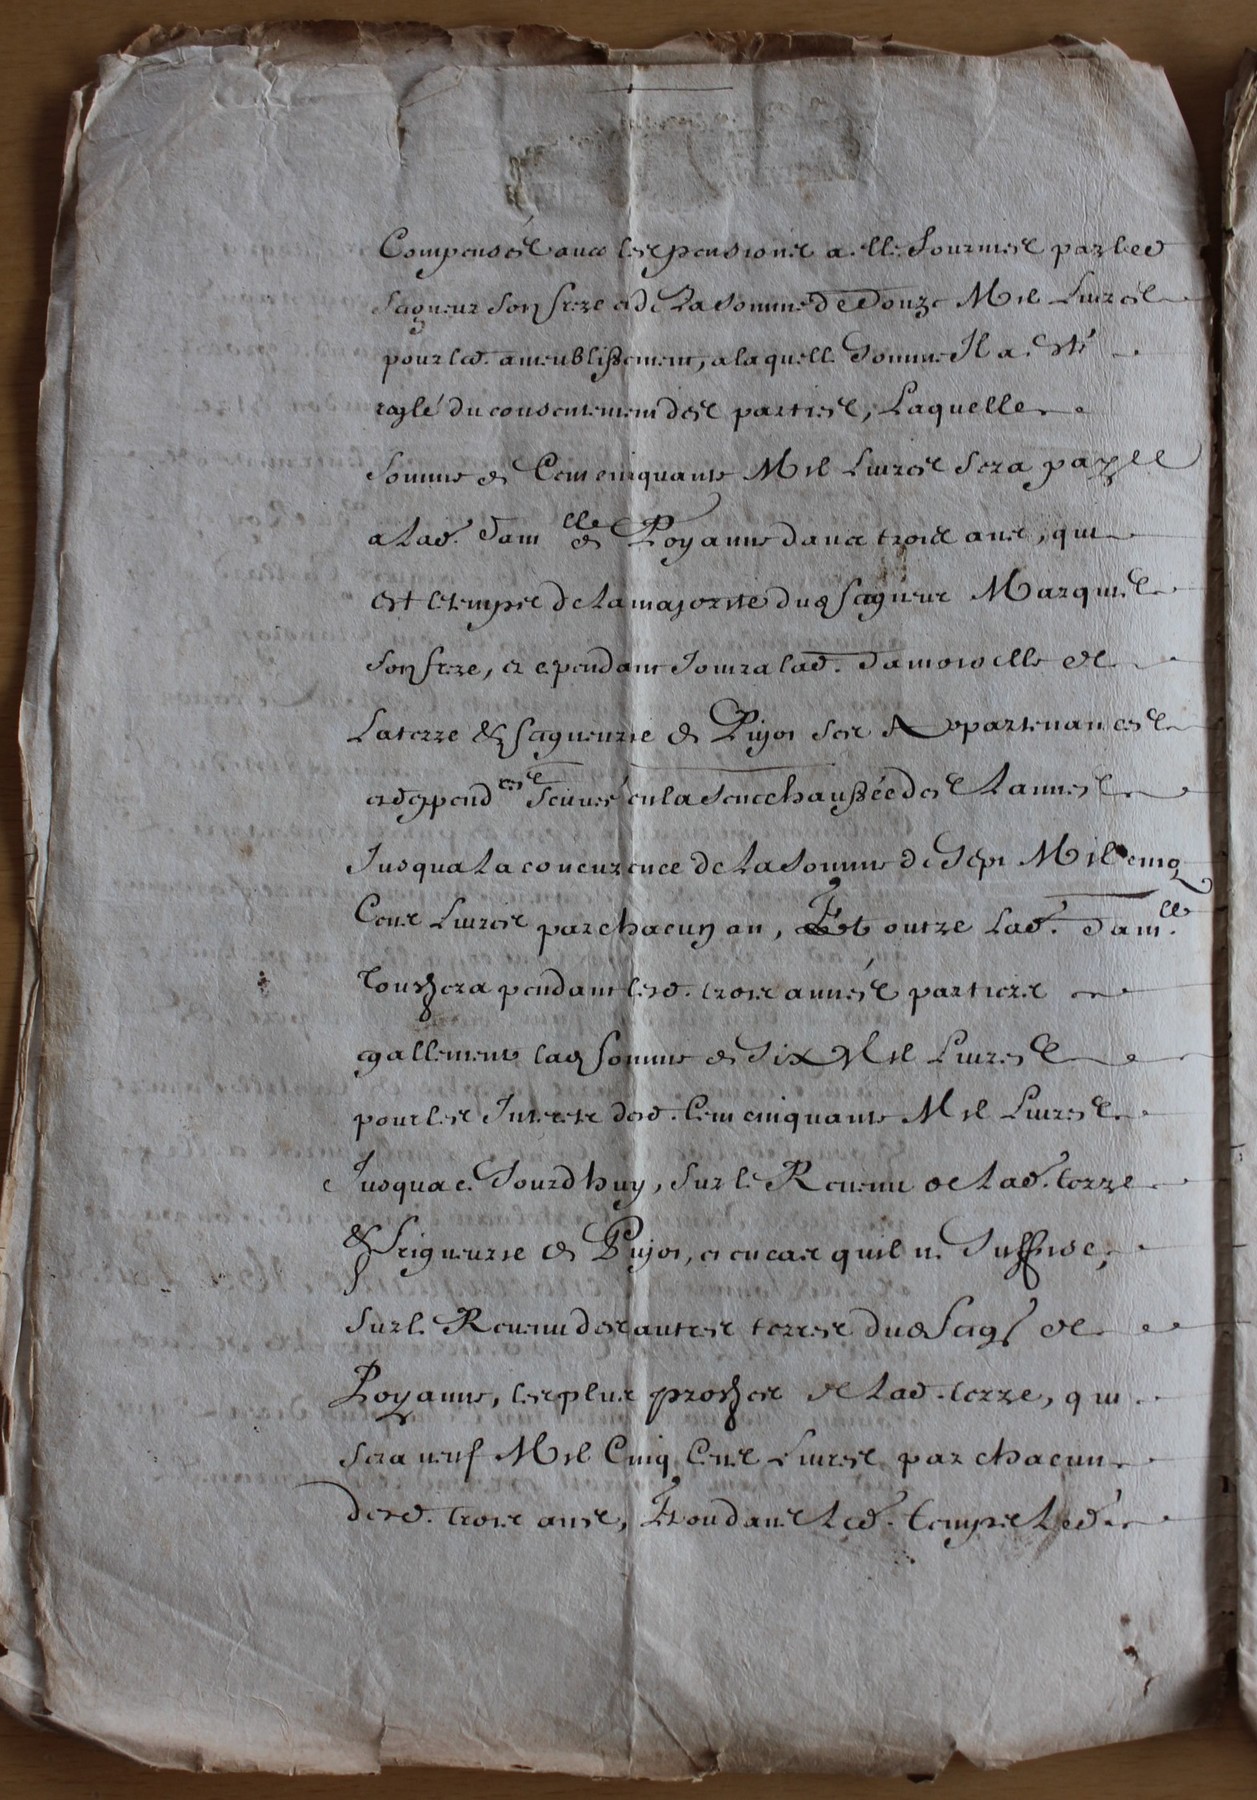 Compensés avec les pensions a elle fournies par led
seigneur son frere et de la somme de Douze Mil Livres
pour led. ameublissement, a laquelle somme Il a esté
reglé du consentement des parties, Laquelle
somme de Cent cinquante Mil Livres sera payée
a lad. Dam.lle de Poyanne dans trois ans, qui
est le temps de la majorité dud seigneur Marquis
son frere, et cependant Jouira lad. Damoiselle de
La terre & seigneurie de Pujos ses Appartenances
et depend.ces scitués en la seneschaussée des Lannes
Jusqua la concurence de la somme de sept Mil cinq
Cens Livres par chacun an, Et outre lad. Dam.lle
touchera pendant lesd. trois années parties
egallement lad somme de six Mil Livres
pour les Interets desd. Cent cinquante Mil Livres
Jusqua ce Jourdhuy, sur le Revenu de lad. terre
& seigneurie de Pujos, et en cas quil ne suffise,
sur le Revenu des autres terres dud seigr de
Poyanne, les plus proches de lad. terre, qui
sera neuf Mil Cinq Cens Livres par chacun
desd. trois ans, Pendant led. temps led.